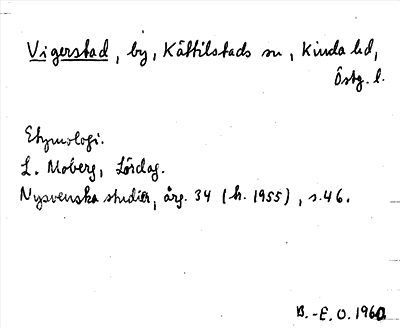 Vigerstad, by, Kättilstads sn, Kinda hd,
Östg. l.
Etymologi.
L. Moberg, Lördag.
Nysvenska studier, årg. 34 (h. 1955), s. 46.
B.-E. O. 1960